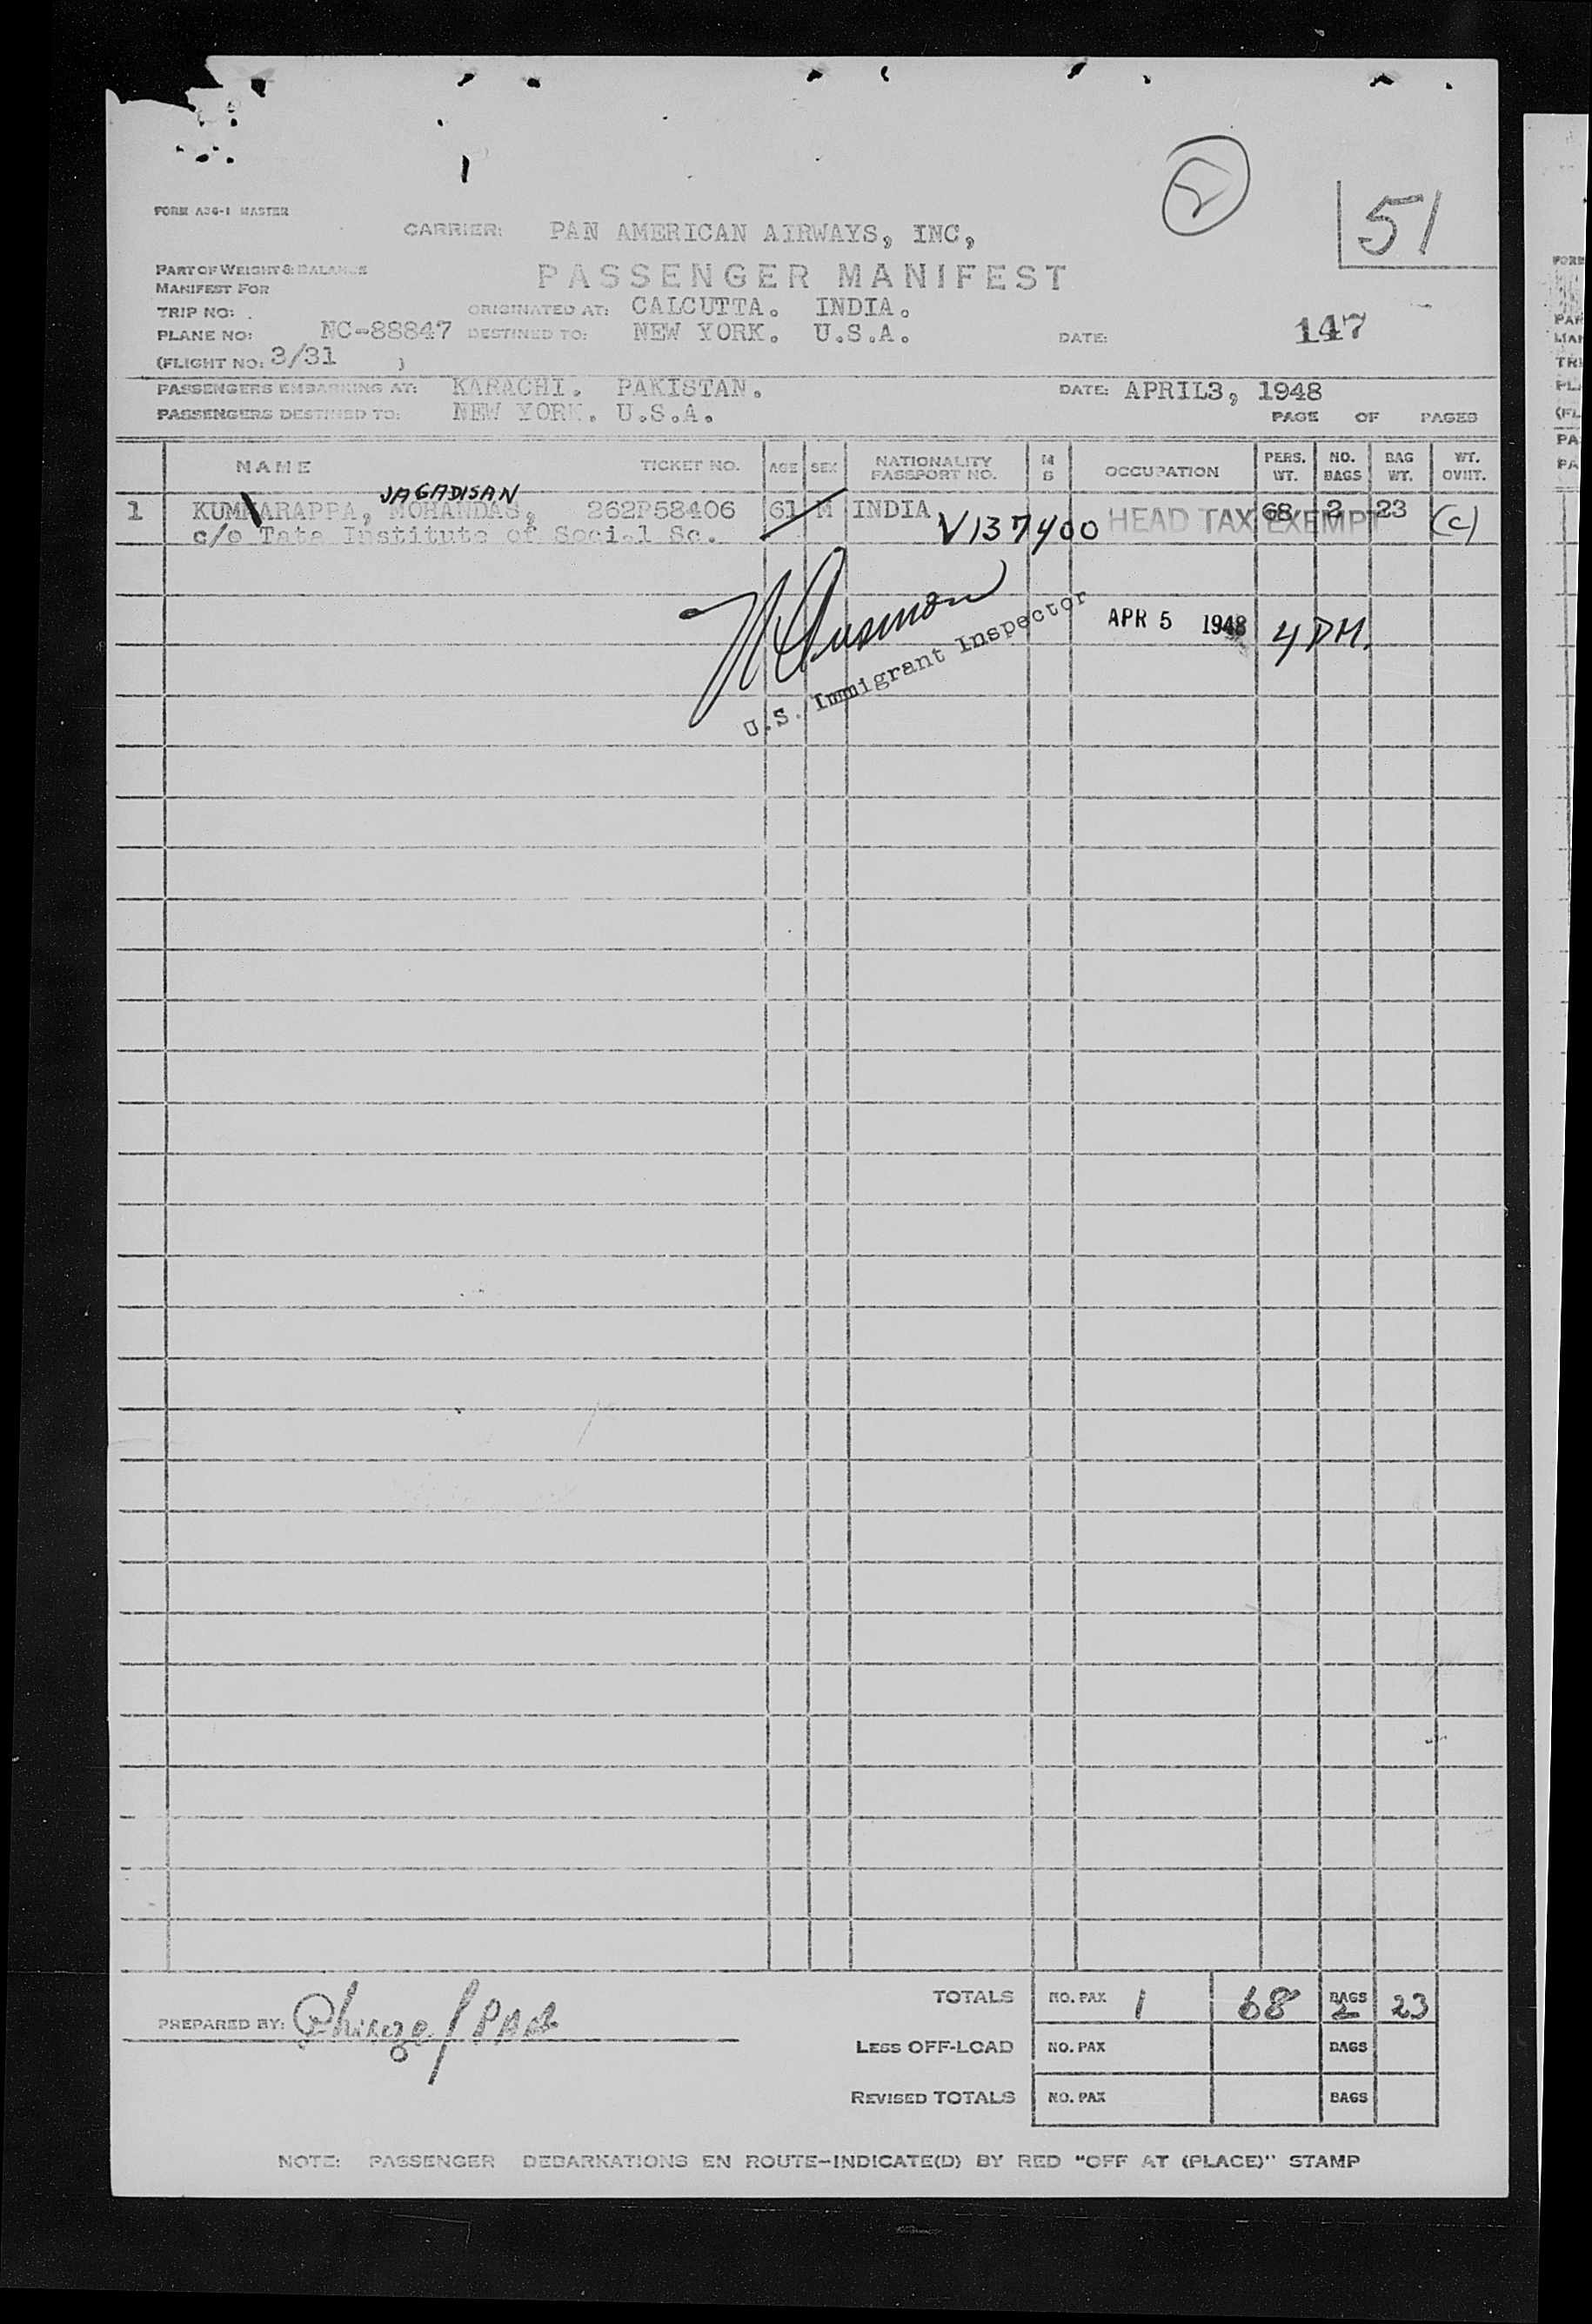 2
51
FORM A36-1 MASTER
CARRIER: PAN AMERICAN AIRWAYS, INC,
PART OF WEIGHT & BALANCE
MANIFEST FOR
PASSENGER MANIFEST
TRIP NO: ORIGINATED AT: CALCUTTA. INDIA.
PLANE NO: NC-88847 DESTINED TO: NEW YORK. U.S.A. DATE: 147
(FLIGHT NO: 3/31 )
PASSENGERS EMBARKING AT: KARACHI. PAKISTAN. DATE: APRIL3, 1948
PASSENGERS DESTINED TO: NEW YORK. U.S.A. PAGE OF PAGES
NAME TICKET NO. AGE SEX NATIONALITY PASSPORT NO. M S OCCUPATION PERS. WT. NO. BAGS BAG WT. WT. OVHT.
JAGADISAN
1 KUMMARAPPA, MOHANDAS, 262P58406 61 M INDIA V137400 HEAD TAX EXEMPT 68 2 23 (C)
c/o Tata Institute of Social Sc.
U.S. Immigrant Inspector
APR 5 1948 4 PM.
TOTALS NO. PAX 1 68 BAGS 2 23
PREPARED BY:
LESS OFF-LOAD NO. PAX BAGS
REVISED TOTALS NO. PAX BAGS
NOTE: PASSENGER DEBARKATIONS EN ROUTE-INDICATE(D) BY RED "OFF AT (PLACE)" STAMP